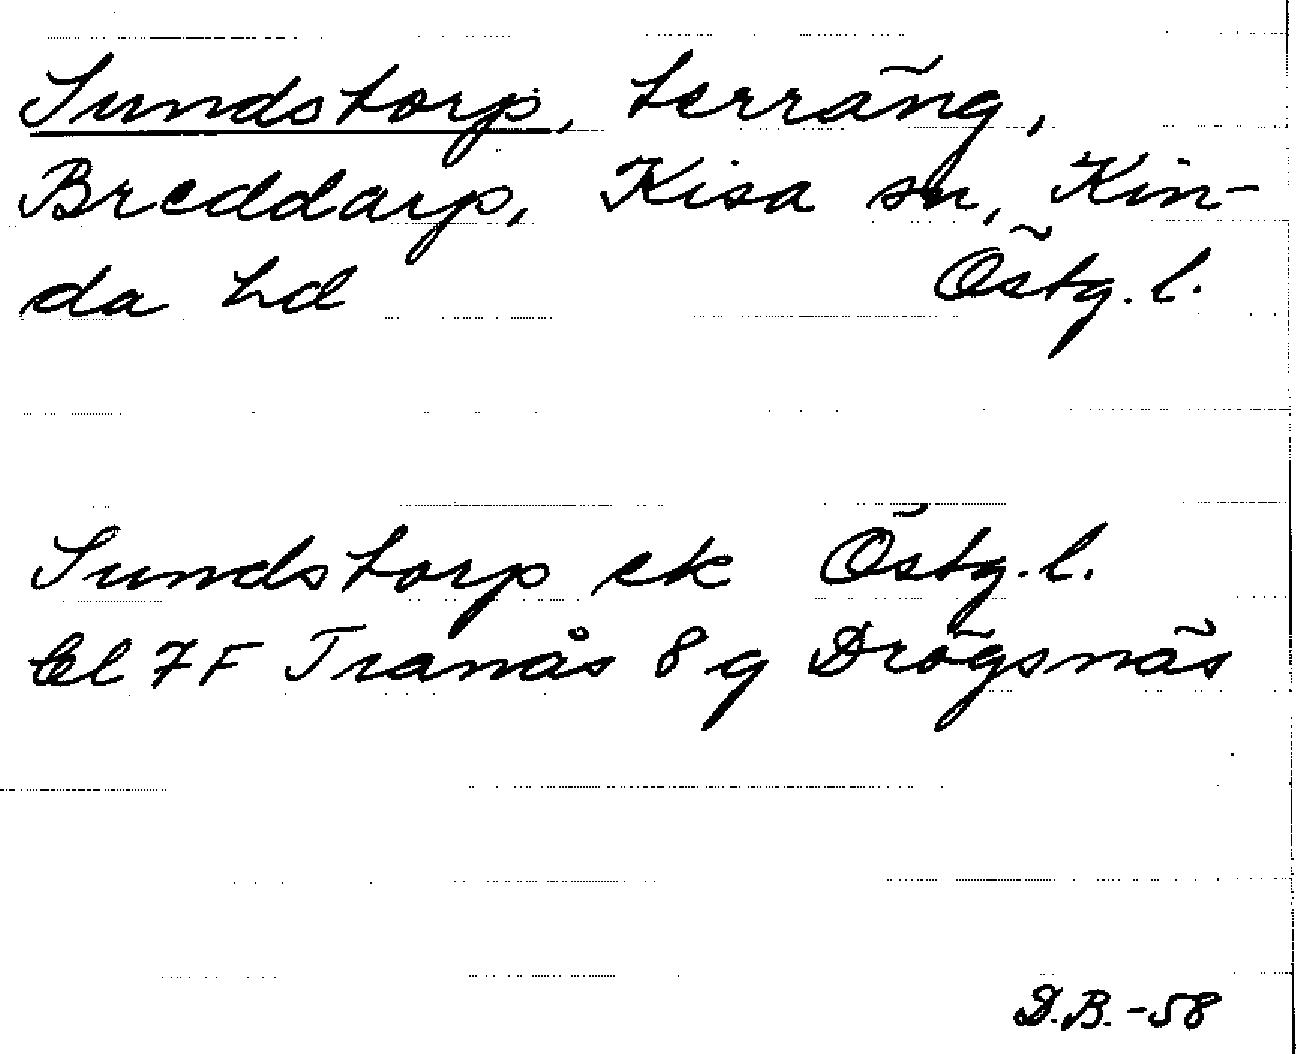 Sundstorp, terräng,
Breddarp, Kisa sn, Kin-
da hd Östg. l.
Sundstorp ek Östg. l.
bl 7F Tranås 8 g Drögsnäs
D.B. -58